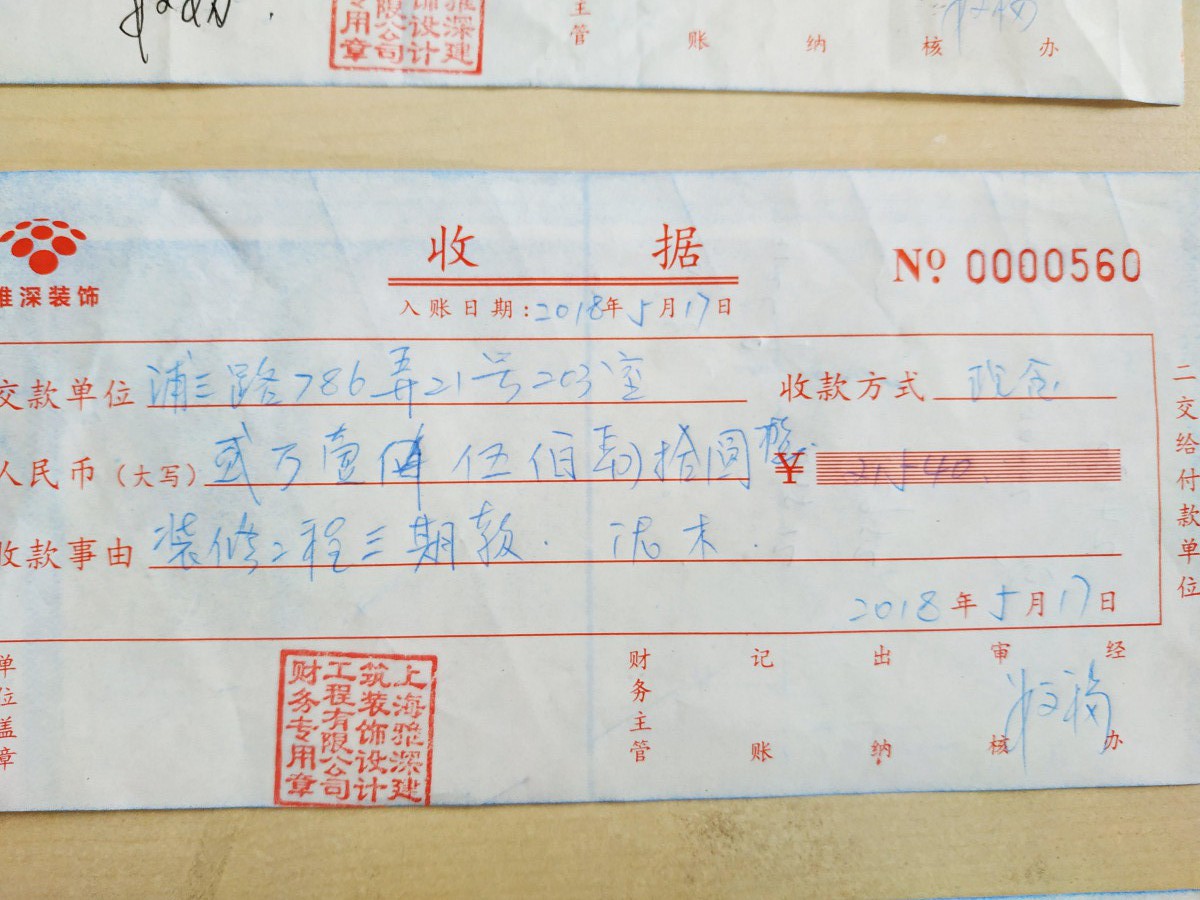 上海雅深建
筑装饰设计
工程有限公司
财务专用章
主管 账 纳 核 办
雅深装饰
收 据
No 0000560
入账日期:2018年5月17日
交款单位 浦三路786弄21号203室 收款方式 现金
人民币(大写) 贰万壹仟伍佰肆拾圆整 ¥ 21540.
收款事由 装修工程三期款.
2018年5月17日
二交给付款单位
单位盖章
财务主管 记账 出纳 审核 经办
上海雅深建
筑装饰设计
工程有限公司
财务专用章